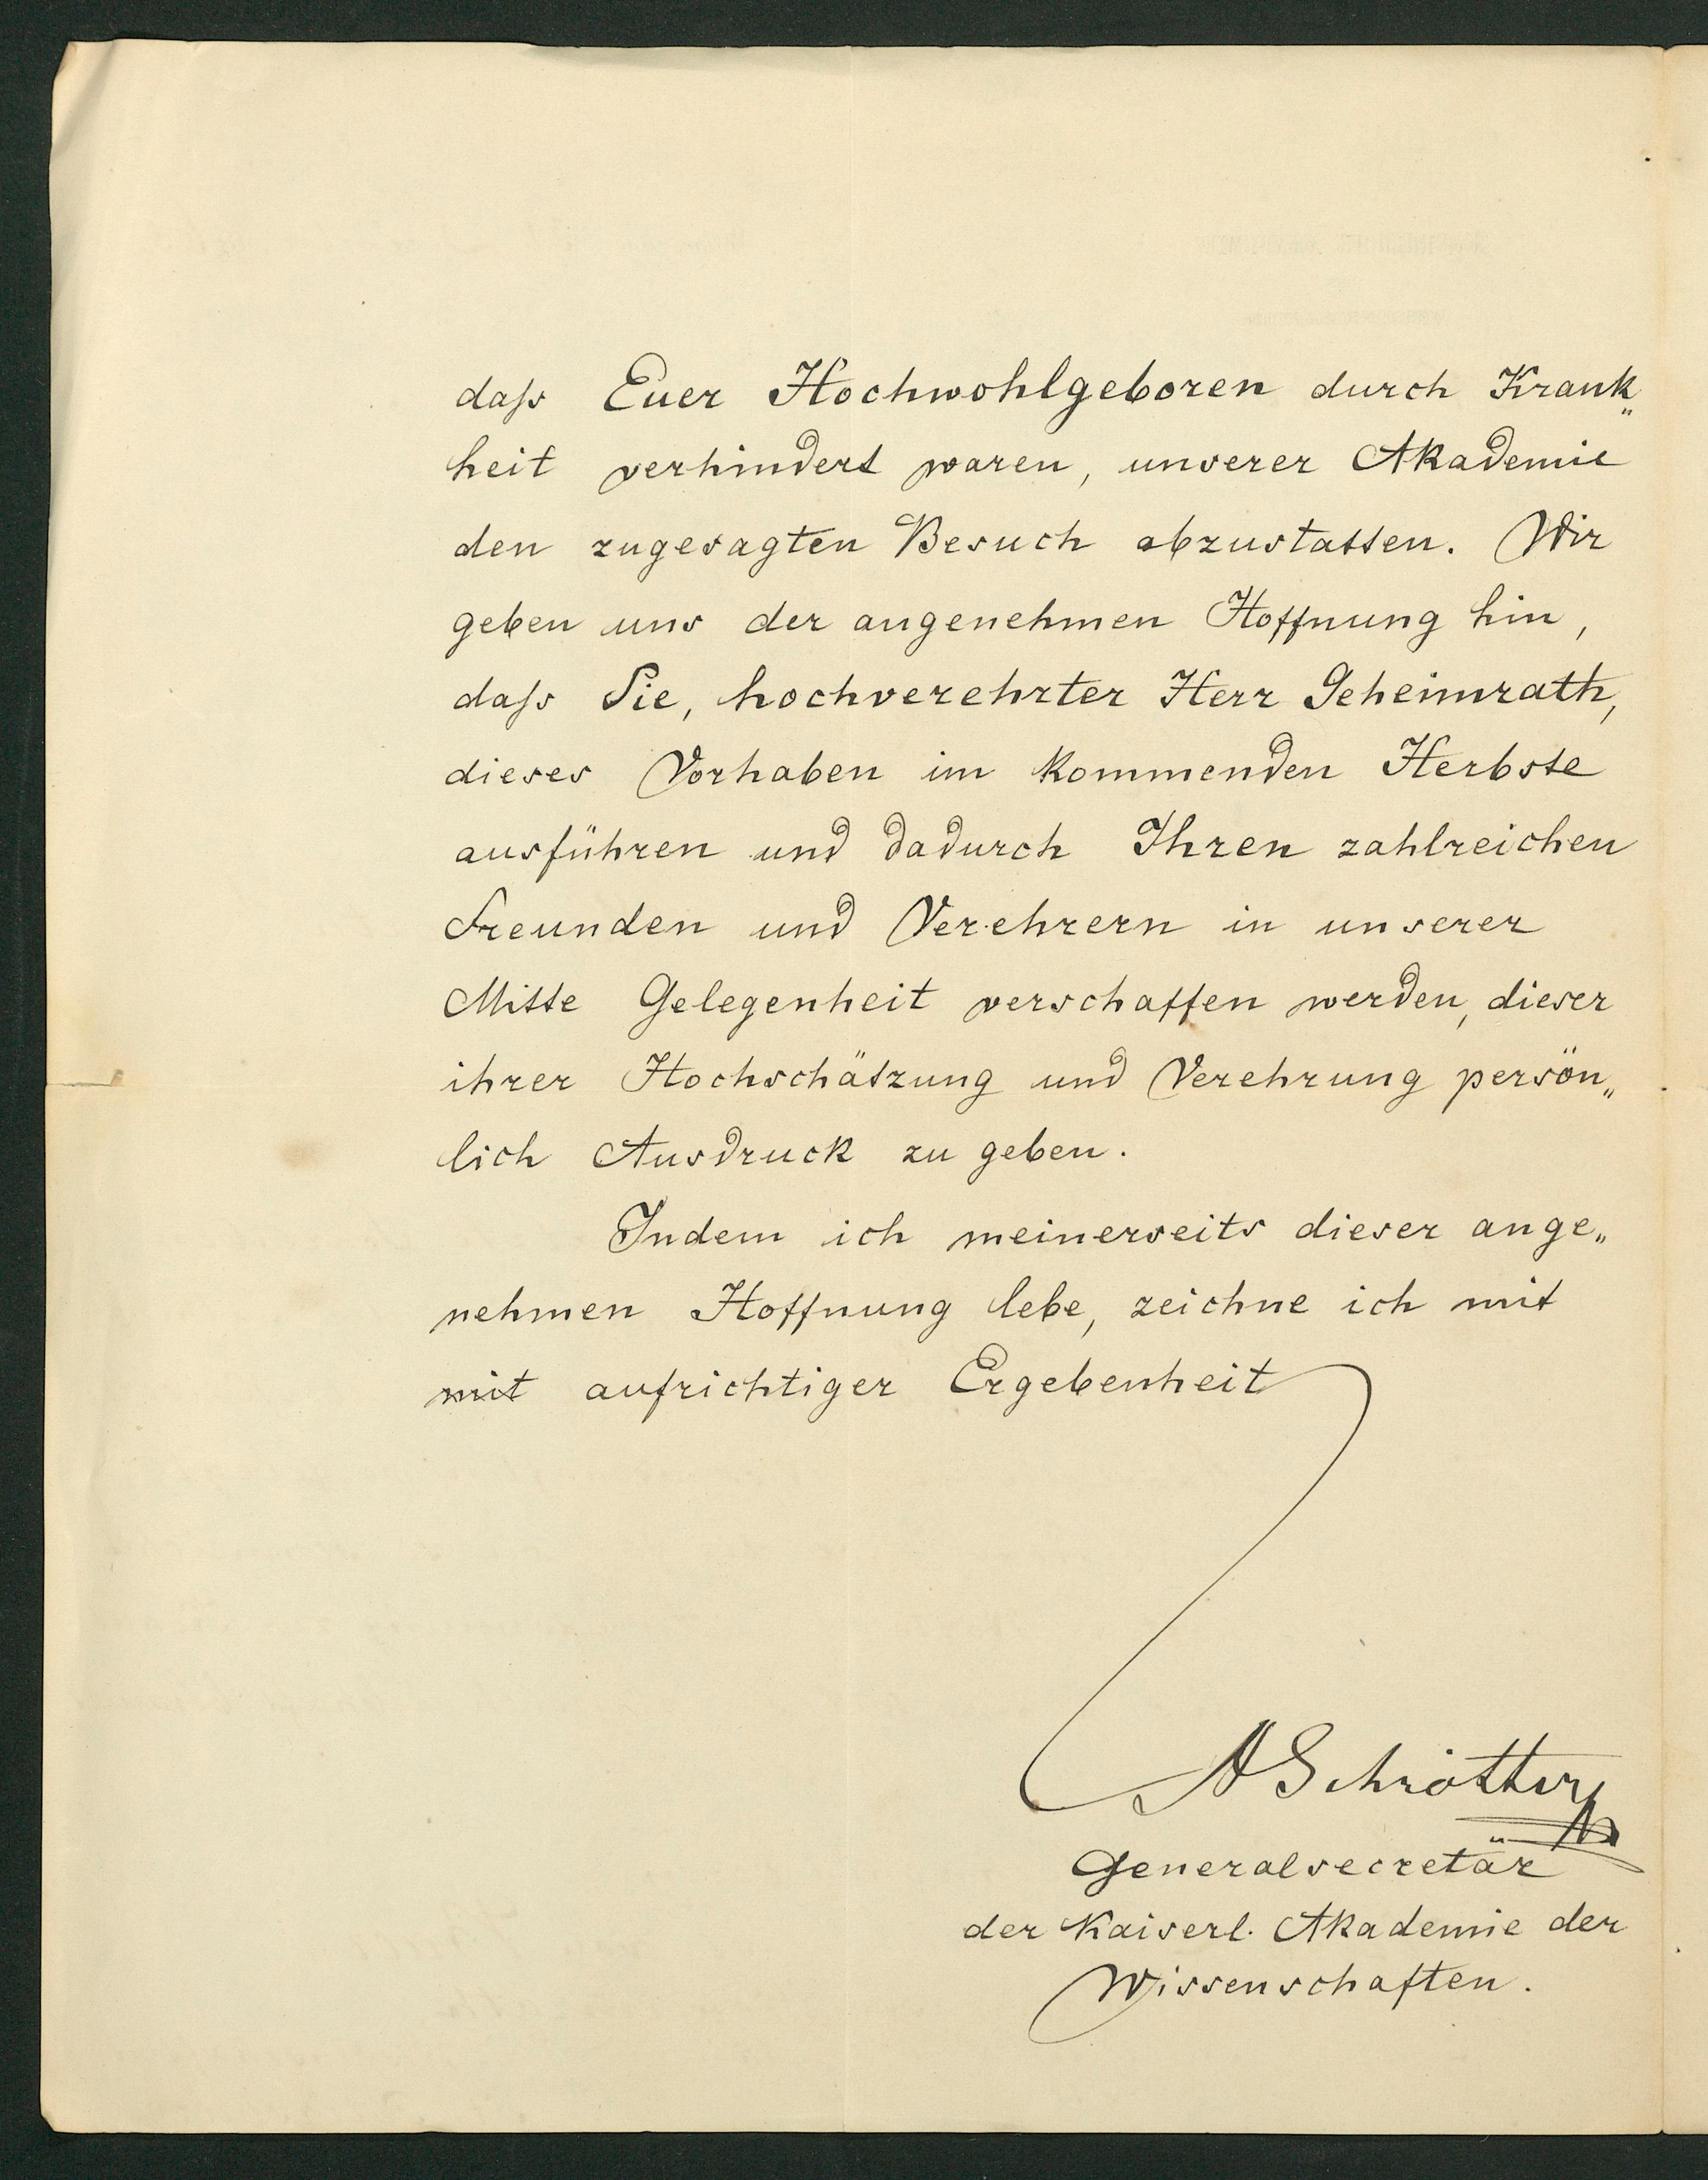 daſs Euer Hochwohlgeboren durch Krank„
heit verhindert waren, unserer Akademie
den zugesagten Besuch abzustatten. Wir
geben uns der angenehmen Hoffnung hin,
daſs Sie, hochverehrter Herr Geheimrath,
dieses Vorhaben im kommenden Herbste
ausführen und dadurch Ihren zahlreichen
Freunden und Verehrern in unserer
Mitte Gelegenheit verschaffen werden, dieser
ihrer Hochschätzung und Verehrung persön„
lich Ausdruck zu geben.
Indem ich meinerseits dieser ange„
nehmen Hoffnung lebe, zeichne ich mit
mit aufrichtiger Ergebenheit
A Schrötter
Generalsecretär
der Kaiserl. Akademie der
Wissenschaften.